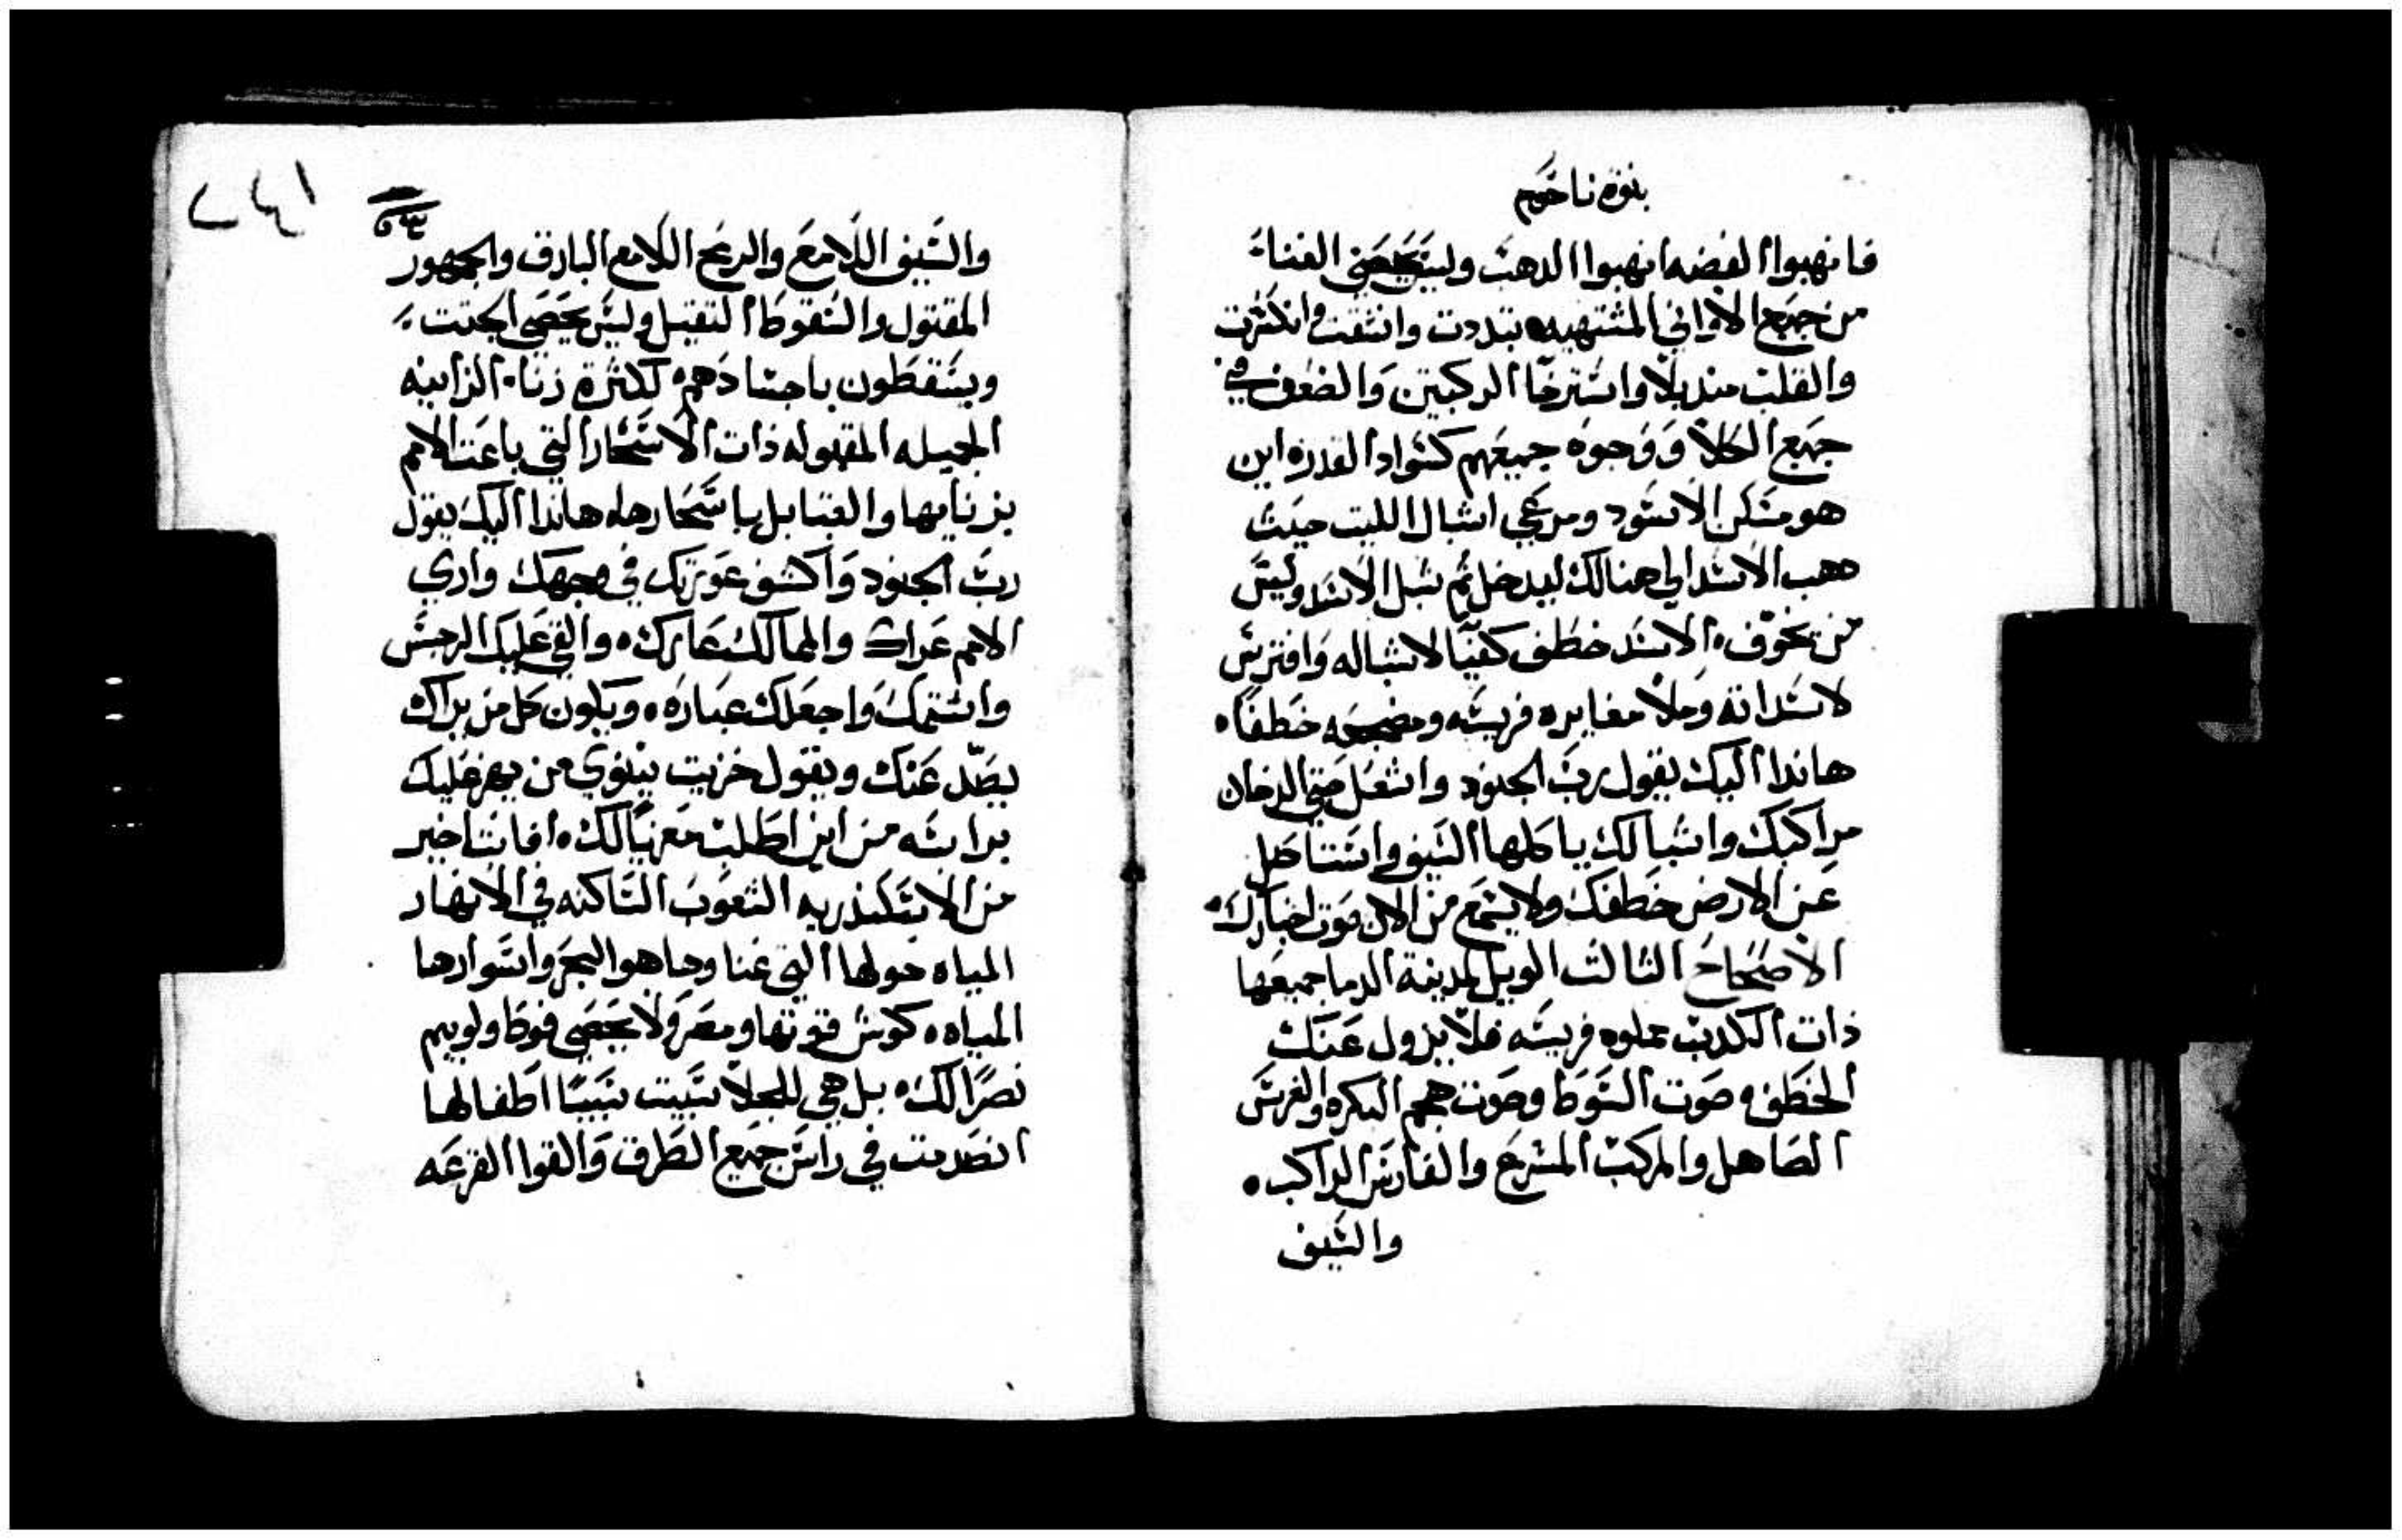 نبوة ناحوم
فانهبوا الفضه انهبوا الدهب وليس يحصي الغناء
من جميع الاواني المشتهيه تبددت وانشقت وانكثرت
والقلب منديلا واسترخا الركبتين والضعف في
جميع الكلا ووجوه جميعهم كسواد القدره اين
هو مسكن الاسود ومرعي اشبال الليت حيث
دهب الاسد الي هنالك ليدخل ثم شبل الاسد وليس
من يخوف الاسد خطف كفيا لاشباله وافترس
لاسداته وملا مغايره فريسه ومضجعه خطفا
هاندا اليك يقول رب الجنود واشعل حتي الدخان
مراكبك واشبالك ياكلها السيف واستاصل
عن الارض خطفك ولا يسمع من الان صوت اخبارك
الاصحاح التالت الويل لمدينة الدما جميعها
ذات الكدب مملوه فريسه فلا يزول عنك
الخطف صوت السوط وصوت همهم البكره والفرس
الصاهل والمركب المسرج والفارس الراكب
والسيف
والسيف اللامع والرمح اللامع البارق والجمهور
المقتول والسقوط التقيل وليس يحصي الجتت
ويسقطون باجسادهم لكثرة زناء الزانيه
الجميله المقبوله ذات الاسحار التي باعت الامم
بزنايها والقبايل باسحارها هاندا اليك يقول
رب الجنود واكشف عورتك في وجهك واري
الامم عراك والممالك عارك والقي عليك الرجس
واشتمك واجعلك عباره ويكون كل من يراك
يصد عنك ويقول خربت نينوي من يهز عليك
براسه من اين اطلب معزيا لك افانت اخير
من الاسكندريه الشعوب الساكنه في الانهار
المياه حولها التي غنا وها هو البحر واسوارها
المياه كوش قوتها ومصر ولا يحصي فوط ولوبيم
نصرا لك بل هي للجلا سبيت سبيا اطفالها
انصدمت في راس جميع الطرق والقوا القرعه